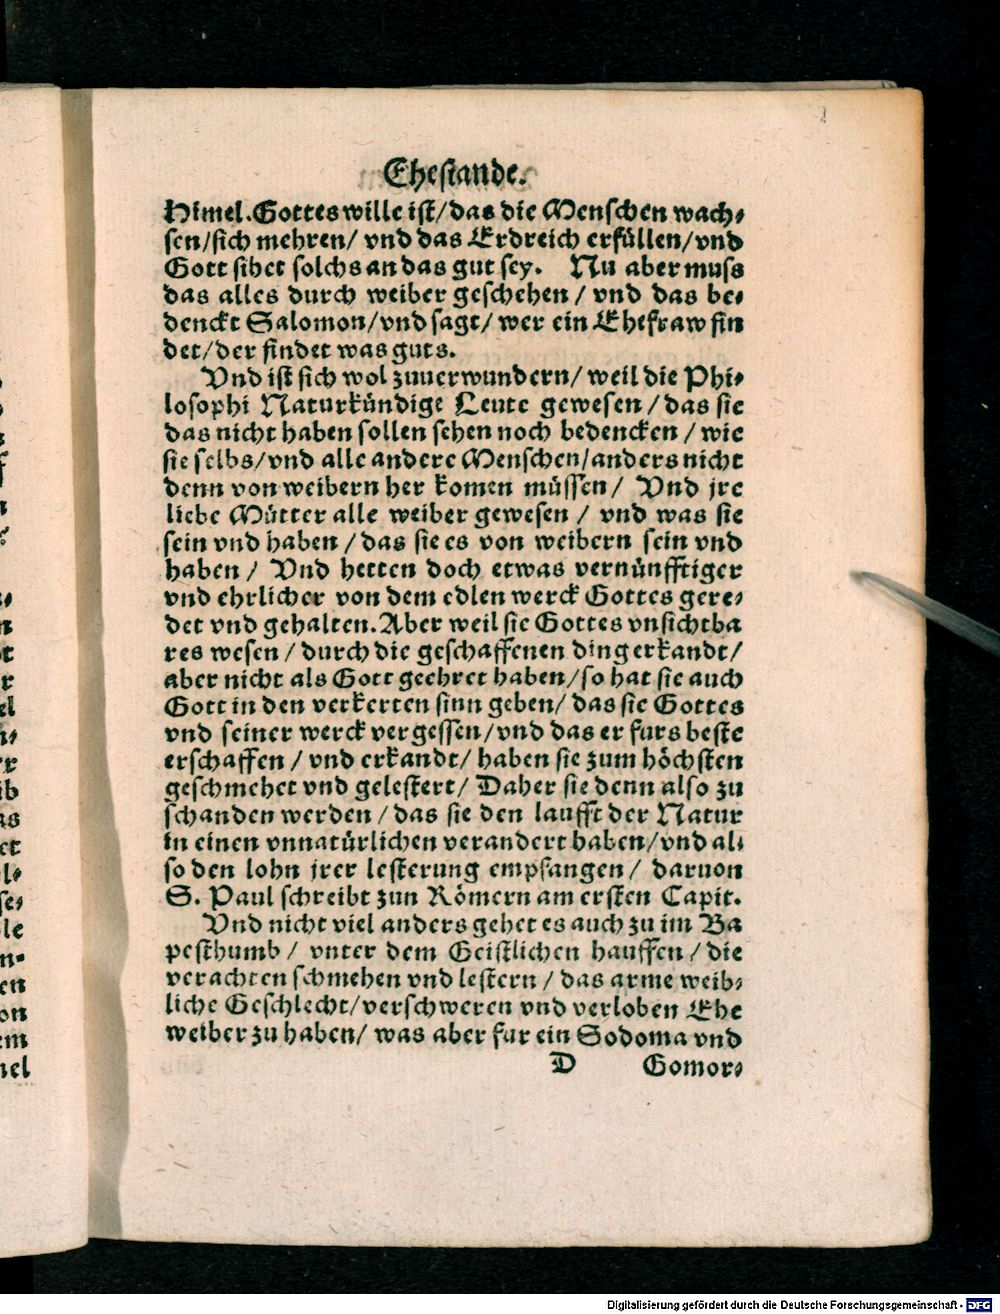 Ehestande.
Himel. Gottes wille ist/das die Menschen wach-
sen/sich mehren/ vnd das Erdreich erfüllen/vnd
Gott sihet solchs an das gut sey. Nu aber muss
das alles durch weiber geschehen / vnd das be-
denckt Salomon/vnd sagt/ wer ein Ehefraw fin
det/der findet was guts.
Vnd ist sich wol zuuerwundern/ weil die Phi-
losophi Naturkündige Leute gewesen / das sie
das nicht haben sollen sehen noch bedencken / wie
sie selbs/vnd alle andere Menschen/anders nicht
denn von weibern her komen müssen / Vnd jre
liebe Mütter alle weiber gewesen / vnd was sie
sein vnd haben / das sie es von weibern sein vnd
haben / Vnd hetten doch etwas vernünfftiger
vnd ehrlicher von dem edlen werck Gottes gere-
det vnd gehalten. Aber weil sie Gottes vnsichtba
res wesen / durch die geschaffenen ding erkandt/
aber nicht als Gott geehret haben/so hat sie auch
Gott in den verkerten sinn geben/ das sie Gottes
vnd seiner werck vergessen/vnd das er furs beste
erschaffen / vnd erkandt/ haben sie zum höchsten
geschmehet vnd gelestert/ Daher sie denn also zu
schanden werden / das sie den laufft der Natur
in einen vnnatürlichen verandert haben/vnd al-
so den lohn jrer lesterung empfangen / daruon
S. Paul schreibt zun Römern am ersten Capit.
Vnd nicht viel anders gehet es auch zu im Ba
pesthumb / vnter dem Geistlichen hauffen / die
verachten schmehen vnd lestern / das arme weib-
liche Geschlecht/verschweren vnd verloben Ehe
weiber zu haben/ was aber fur ein Sodoma vnd
D Gomor-
Digitalisierung gefördert durch die Deutsche Forschungsgemeinschaft - DFG